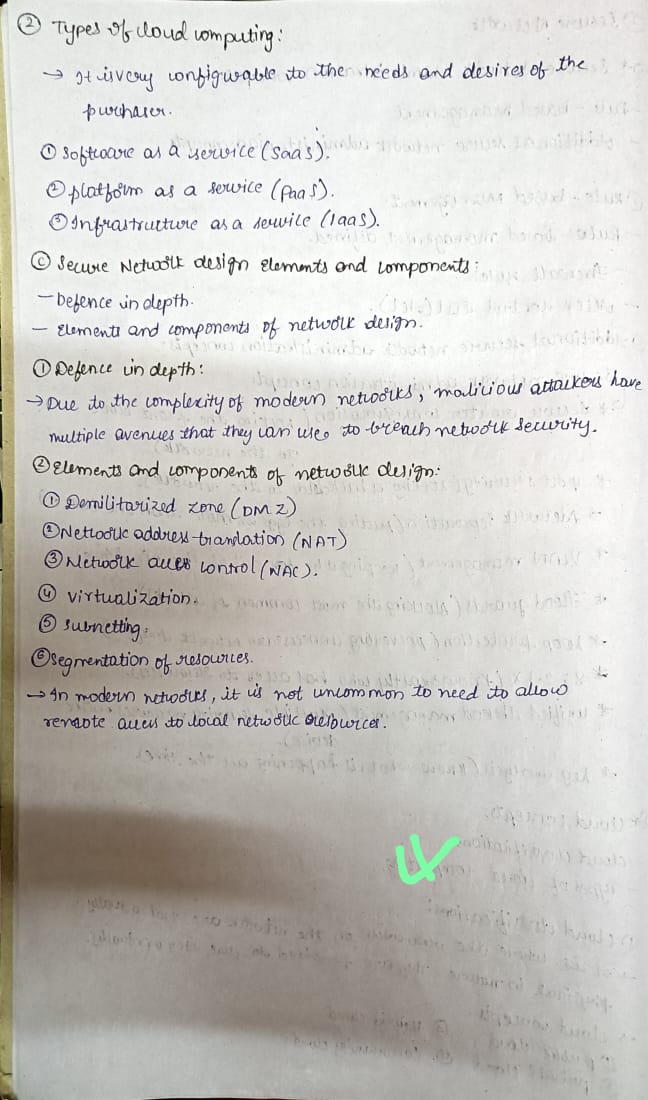 ② Types of cloud computing:
→ It is very configurable to the needs and desires of the
purchaser.
① Software as a service (SaaS).
② platform as a service (PaaS).
③ Infrastructure as a service (IaaS).
Ⓒ Secure Network design elements and components:
- Defence in depth.
- Elements and components of network design.
① Defence in depth:
→ Due to the complexity of modern networks, malicious attackers have
multiple avenues that they can use to breach network security.
② Elements and components of network design:
① Demilitarized zone (DMZ)
② Network address-translation (NAT)
③ Network access control (NAC).
④ virtualization.
⑤ subnetting.
⑥ segmentation of resources.
→ In modern networks, it is not uncommon to need to allow
remote access to local network resources.
4